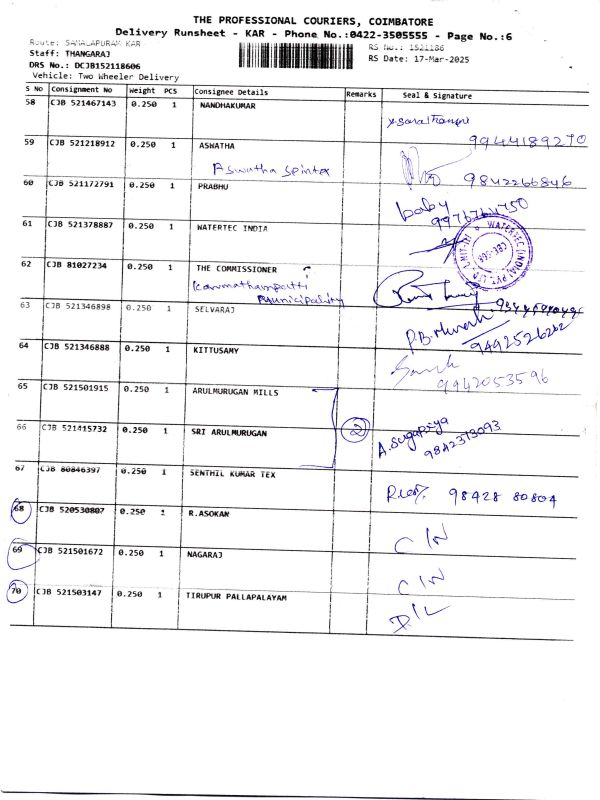 THE PROFESSIONAL COURIERS, COIMBATORE
Delivery Runsheet - KAR - Phone No.:0422-3505555 - Page No.:6
Route: SAMALAPURAM KAR
RS No.: 1521186
Staff: THANGARAJ
RS Date: 17-Mar-2025
DRS No.: DCJB152118606
Vehicle: Two Wheeler Delivery
S No Consignment No Weight PCS Consignee Details Remarks Seal & Signature
58 CJB 521467143 0.250 1 NANDHAKUMAR
9944189270
59 CJB 521218912 0.250 1 ASWATHA
Aswatha Spintex
9842266846
60 CJB 521172791 0.250 1 PRABHU
baby
9976764750
61 CJB 521378887 0.250 1 WATERTEC INDIA
WATERTEC (INDIA) PVT. LTD.
62 CJB 81027234 0.250 1 THE COMMISSIONER
Karumathampatti
Municipality
63 CJB 521346898 0.250 1 SELVARAJ
9492526262
64 CJB 521346888 0.250 1 KITTUSAMY
9942053596
65 CJB 521501915 0.250 1 ARULMURUGAN MILLS
66 CJB 521415732 0.250 1 SRI ARULMURUGAN
2
A.Sugapriya
9842313093
67 CJB 80846397 0.250 1 SENTHIL KUMAR TEX
98428 80804
68 CJB 520530807 0.250 1 R.ASOKAN
C/N
69 CJB 521501672 0.250 1 NAGARAJ
C/N
70 CJB 521503147 0.250 1 TIRUPUR PALLAPALAYAM
D/L